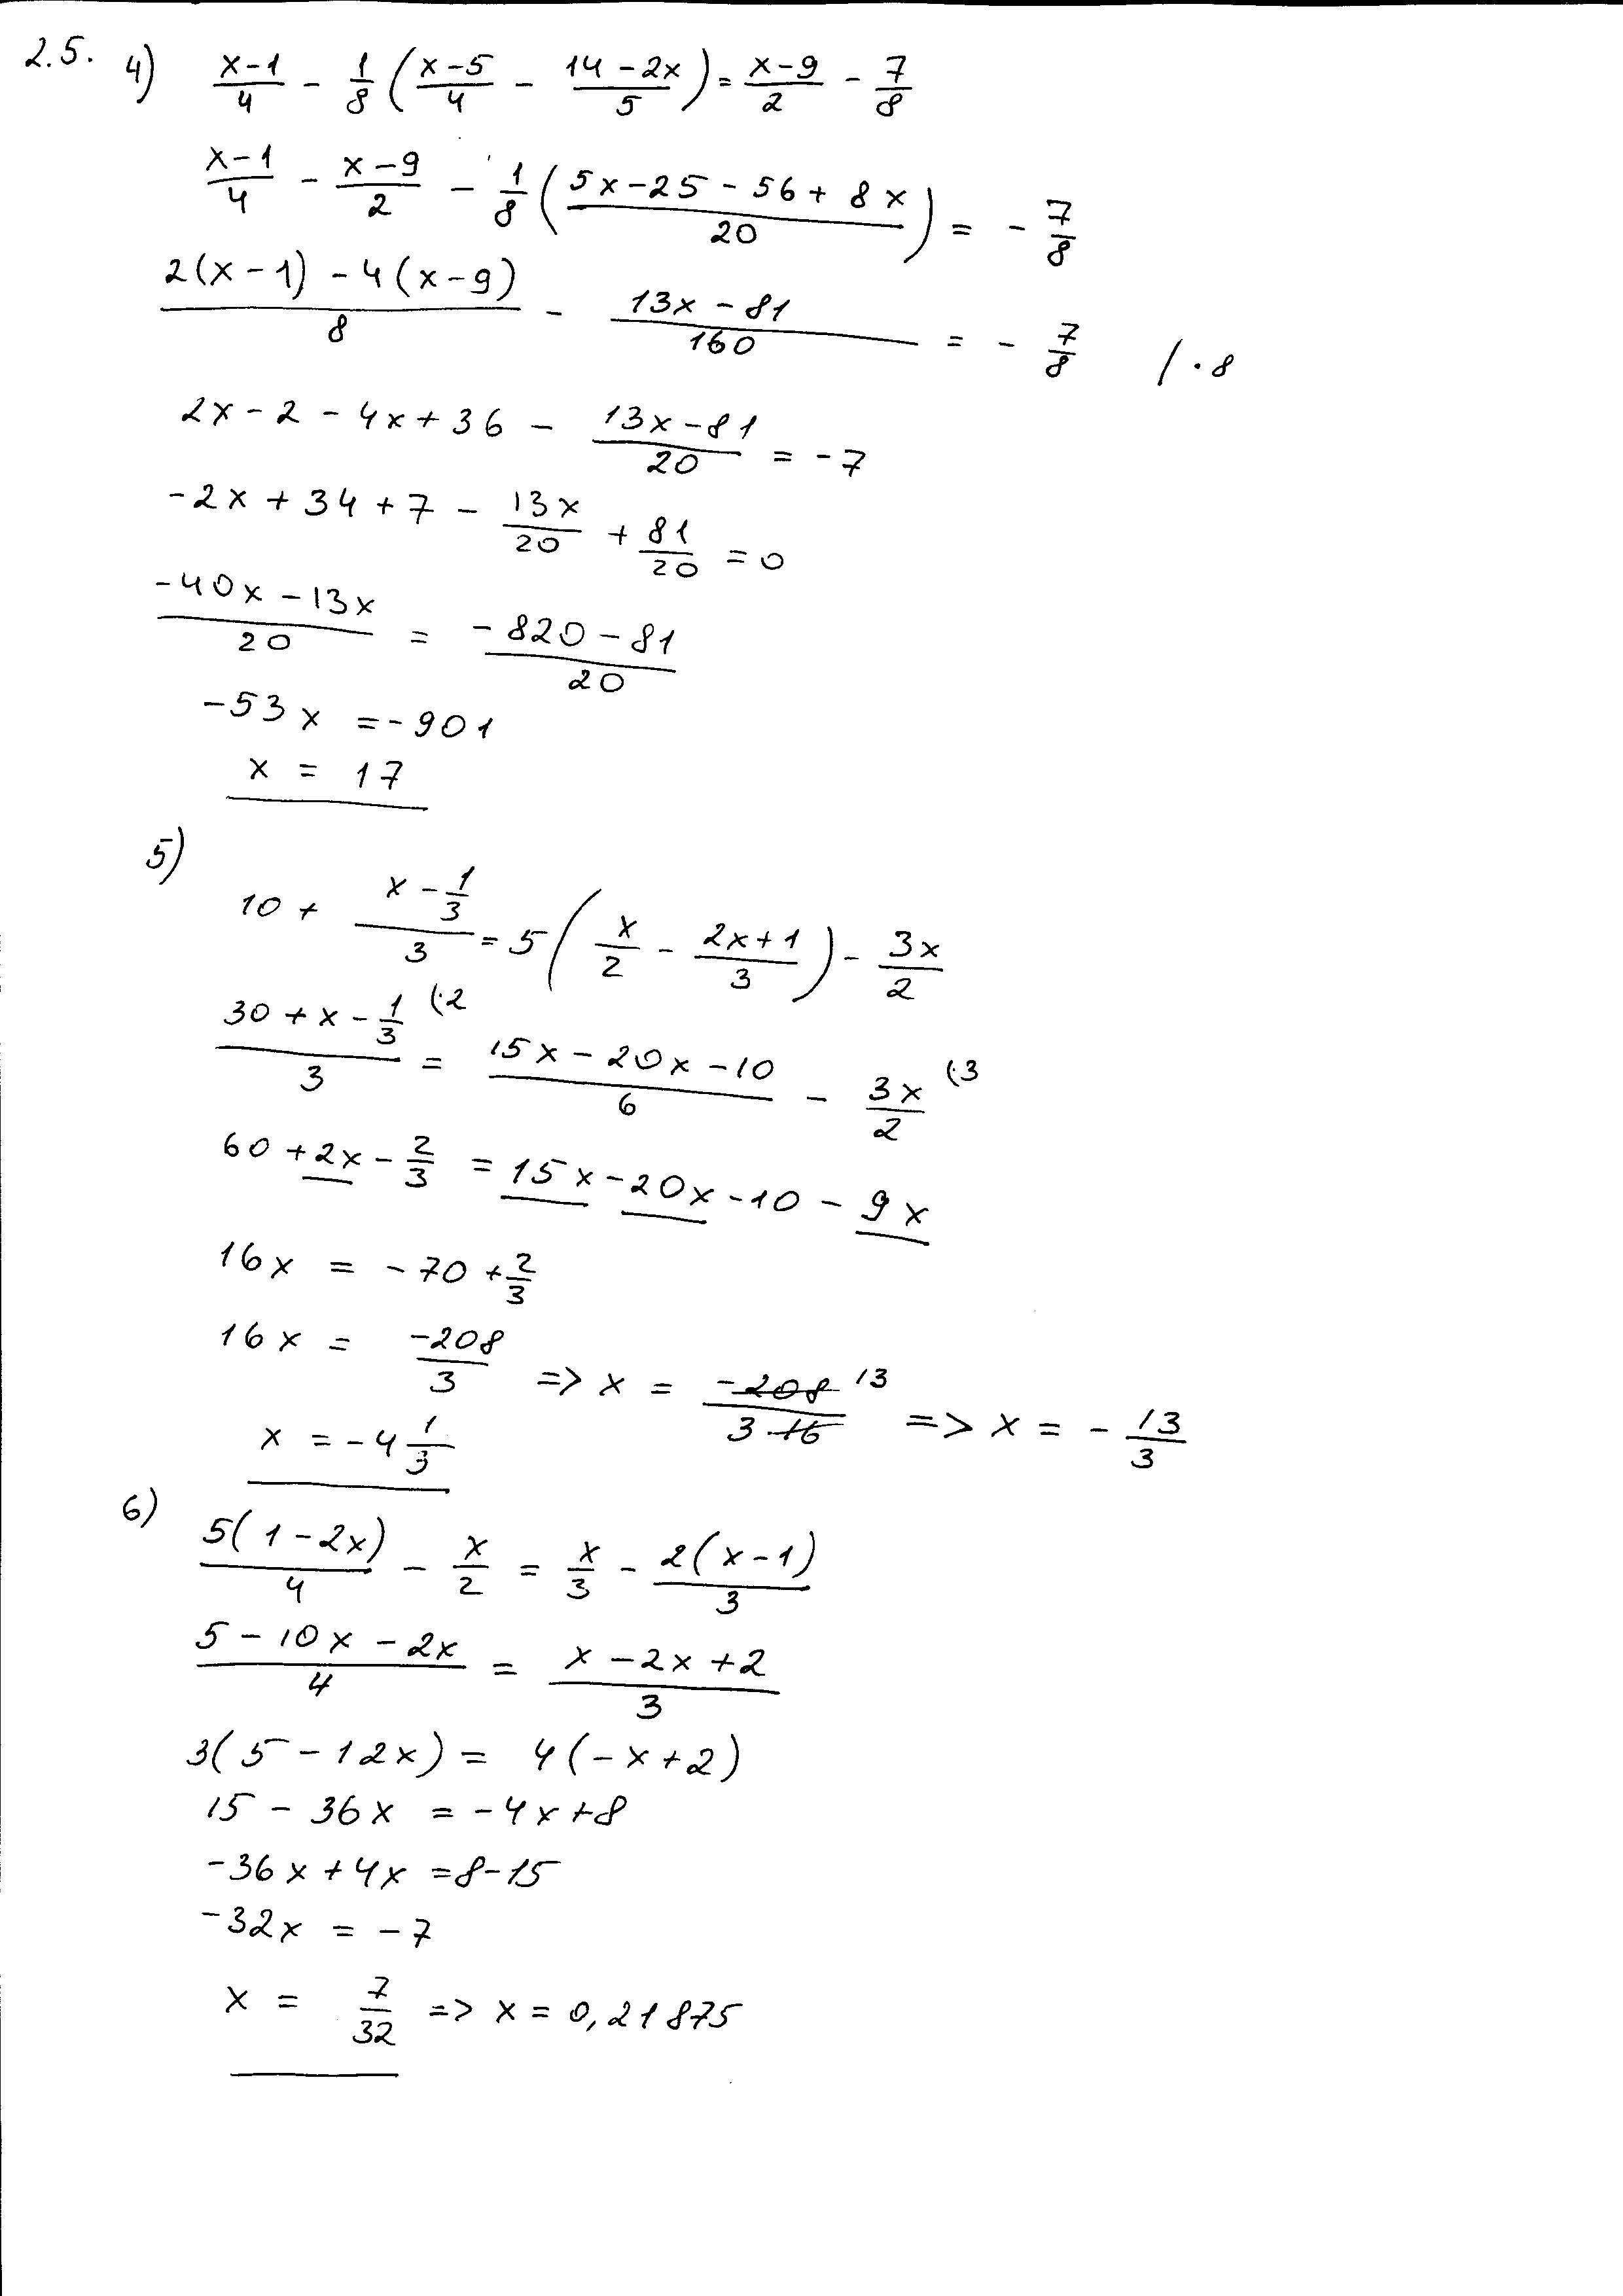 2.5. 4) (x-1)/4 - 1/8 ( (x-5)/4 - (14-2x)/5 ) = (x-9)/2 - 7/8
(x-1)/4 - (x-9)/2 - 1/8 ( (5x-25-56+8x)/20 ) = - 7/8
(2(x-1) - 4(x-9))/8 - (13x-81)/160 = - 7/8 / · 8
2x - 2 - 4x + 36 - (13x-81)/20 = -7
-2x + 34 + 7 - 13x/20 + 81/20 = 0
(-40x - 13x)/20 = (-820 - 81)/20
-53x = -901
x = 17
5)
10 + (x - 1/3)/3 = 5 ( x/2 - (2x+1)/3 ) - 3x/2
(30 + x - 1/3)/3 (·2 = (15x - 20x - 10)/6 - 3x/2 (·3
60 + 2x - 2/3 = 15x - 20x - 10 - 9x
16x = -70 + 2/3
16x = -208/3 => x = -208/(3·16) 13 => x = - 13/3
x = -4 1/3
6)
5(1-2x)/4 - x/2 = x/3 - 2(x-1)/3
(5 - 10x - 2x)/4 = (x - 2x + 2)/3
3(5 - 12x) = 4(-x + 2)
15 - 36x = -4x + 8
-36x + 4x = 8 - 15
-32x = -7
x = 7/32 => x = 0,21875